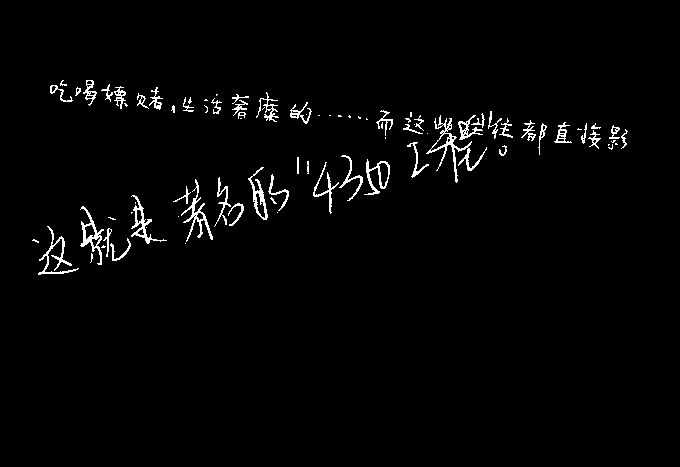 吃喝嫖赌,生活奢糜的……而这些往往都直接影
这就是著名的"4350工程"。